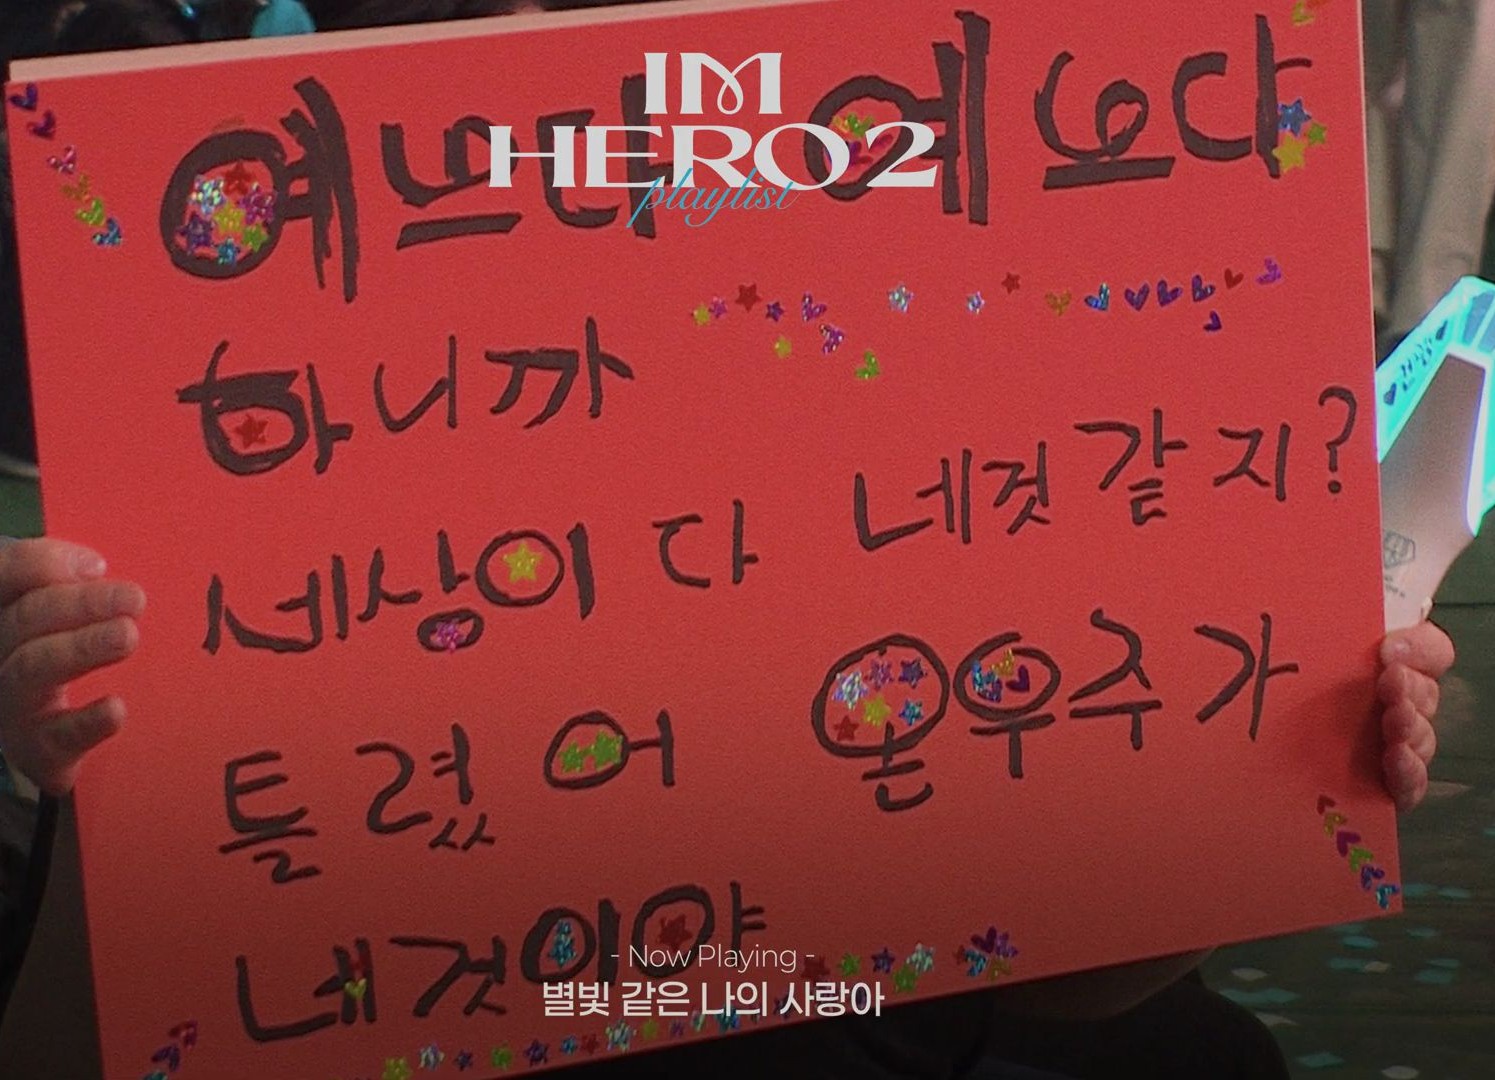 IM
HERO2
playlist
예쁘다 예쁘다
하니까
세상이 다 네것 같지?
틀렸어 온 우주가
네것이야
- Now Playing -
별빛 같은 나의 사랑아